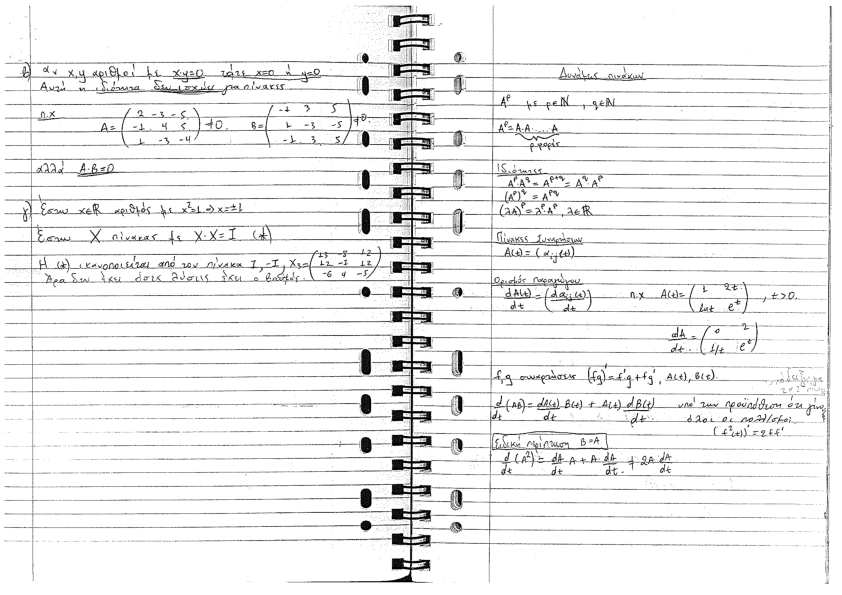 β) αν x,y αριθμοί με x·y=0 τότε x=0 ή y=0
Αυτή η ιδιότητα δεν ισχύει για πίνακες
π.χ A = ( 2 -3 -5 ; -1 4 5 ; 1 -3 -4 ) ≠0. B = ( -1 3 5 ; 1 -3 -5 ; -1 3 5 ) ≠0.
αλλά A·B=0
γ) Έστω x∈ℝ αριθμός με x²=1 ⇒ x=±1
Έστω X πίνακας με X·X=I (*)
Η (*) ικανοποιείται από τον πίνακα I, -I, X₃= ( 12 ; 12 12 ; -6 4 -5 )
Άρα δεν έχει όσες λύσεις έχει ο βαθμός.
Δυνάμεις πινάκων
Aᵖ με p∈ℕ, q∈ℕ
Aᵖ = A·A.....A
p φορές
Ιδιότητες
AᵖA^q = A^{p+q} = A^q Aᵖ
(Aᵖ)^q = A^{pq}
(λA)ᵖ = λᵖ·Aᵖ, λ∈ℝ
Πίνακες Συναρτήσεων
A(t) = (α_{ij}(t))
Ορισμός παραγώγου
dA(t)/dt = (dα_{ij}(t)/dt) π.χ A(t) = ( 1 2t ; lnt e^t ), t>0.
dA/dt = ( 0 2 ; 1/t e^t )
f,g συναρτήσεις (fg)' = f'g + fg', A(t), B(t).
d/dt (AB) = dA(t)/dt B(t) + A(t) dB(t)/dt υπό την προϋπόθεση ότι
όλοι οι πολ/σμοί
(f²(t))' = 2ff'
Ειδική περίπτωση B=A
d/dt (A²) = dA/dt A + A dA/dt ≠ 2A dA/dt